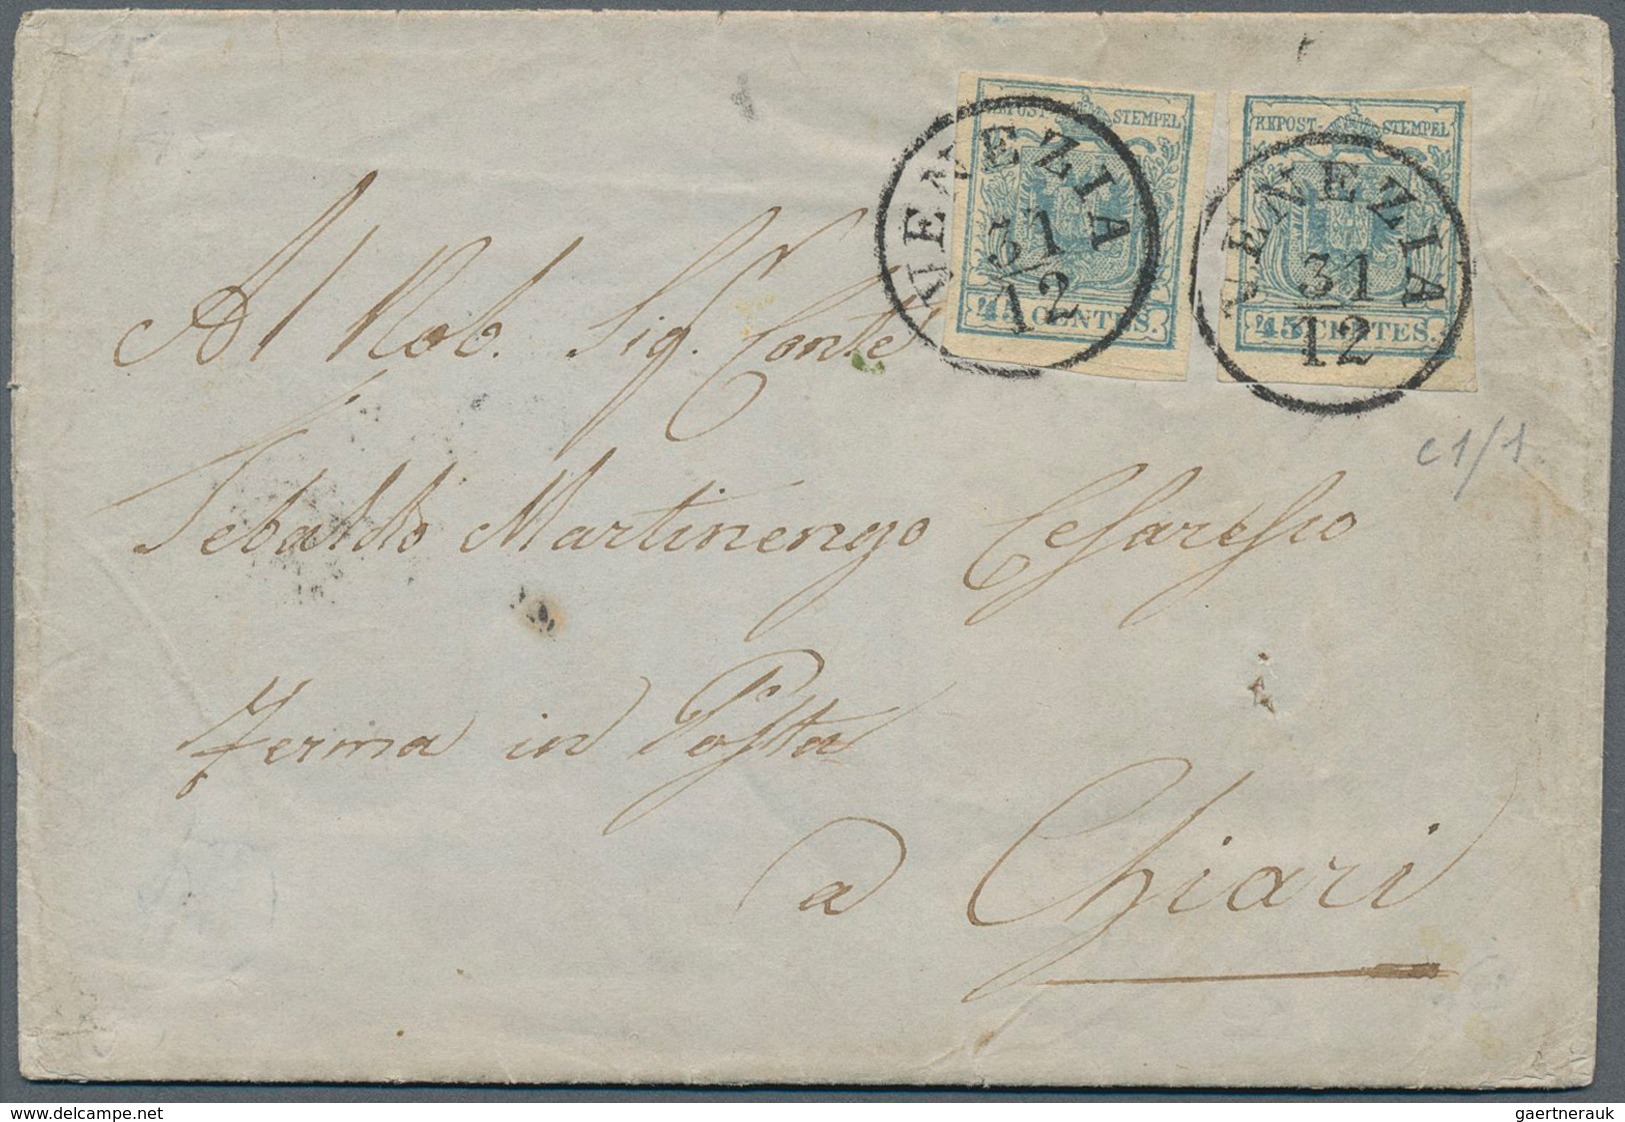 KKPOST- STEMPEL
KKPOST- STEMPEL
VENEZIA
31
12
VENEZIA
31
12
45 CENTES.
45 CENTES.
Al Nob. Sig. Conte
c1/1
Tebaldo Martinengo Cesaresco
ferma in Posta
a Chiari
delcampe.net
gaertnerauk